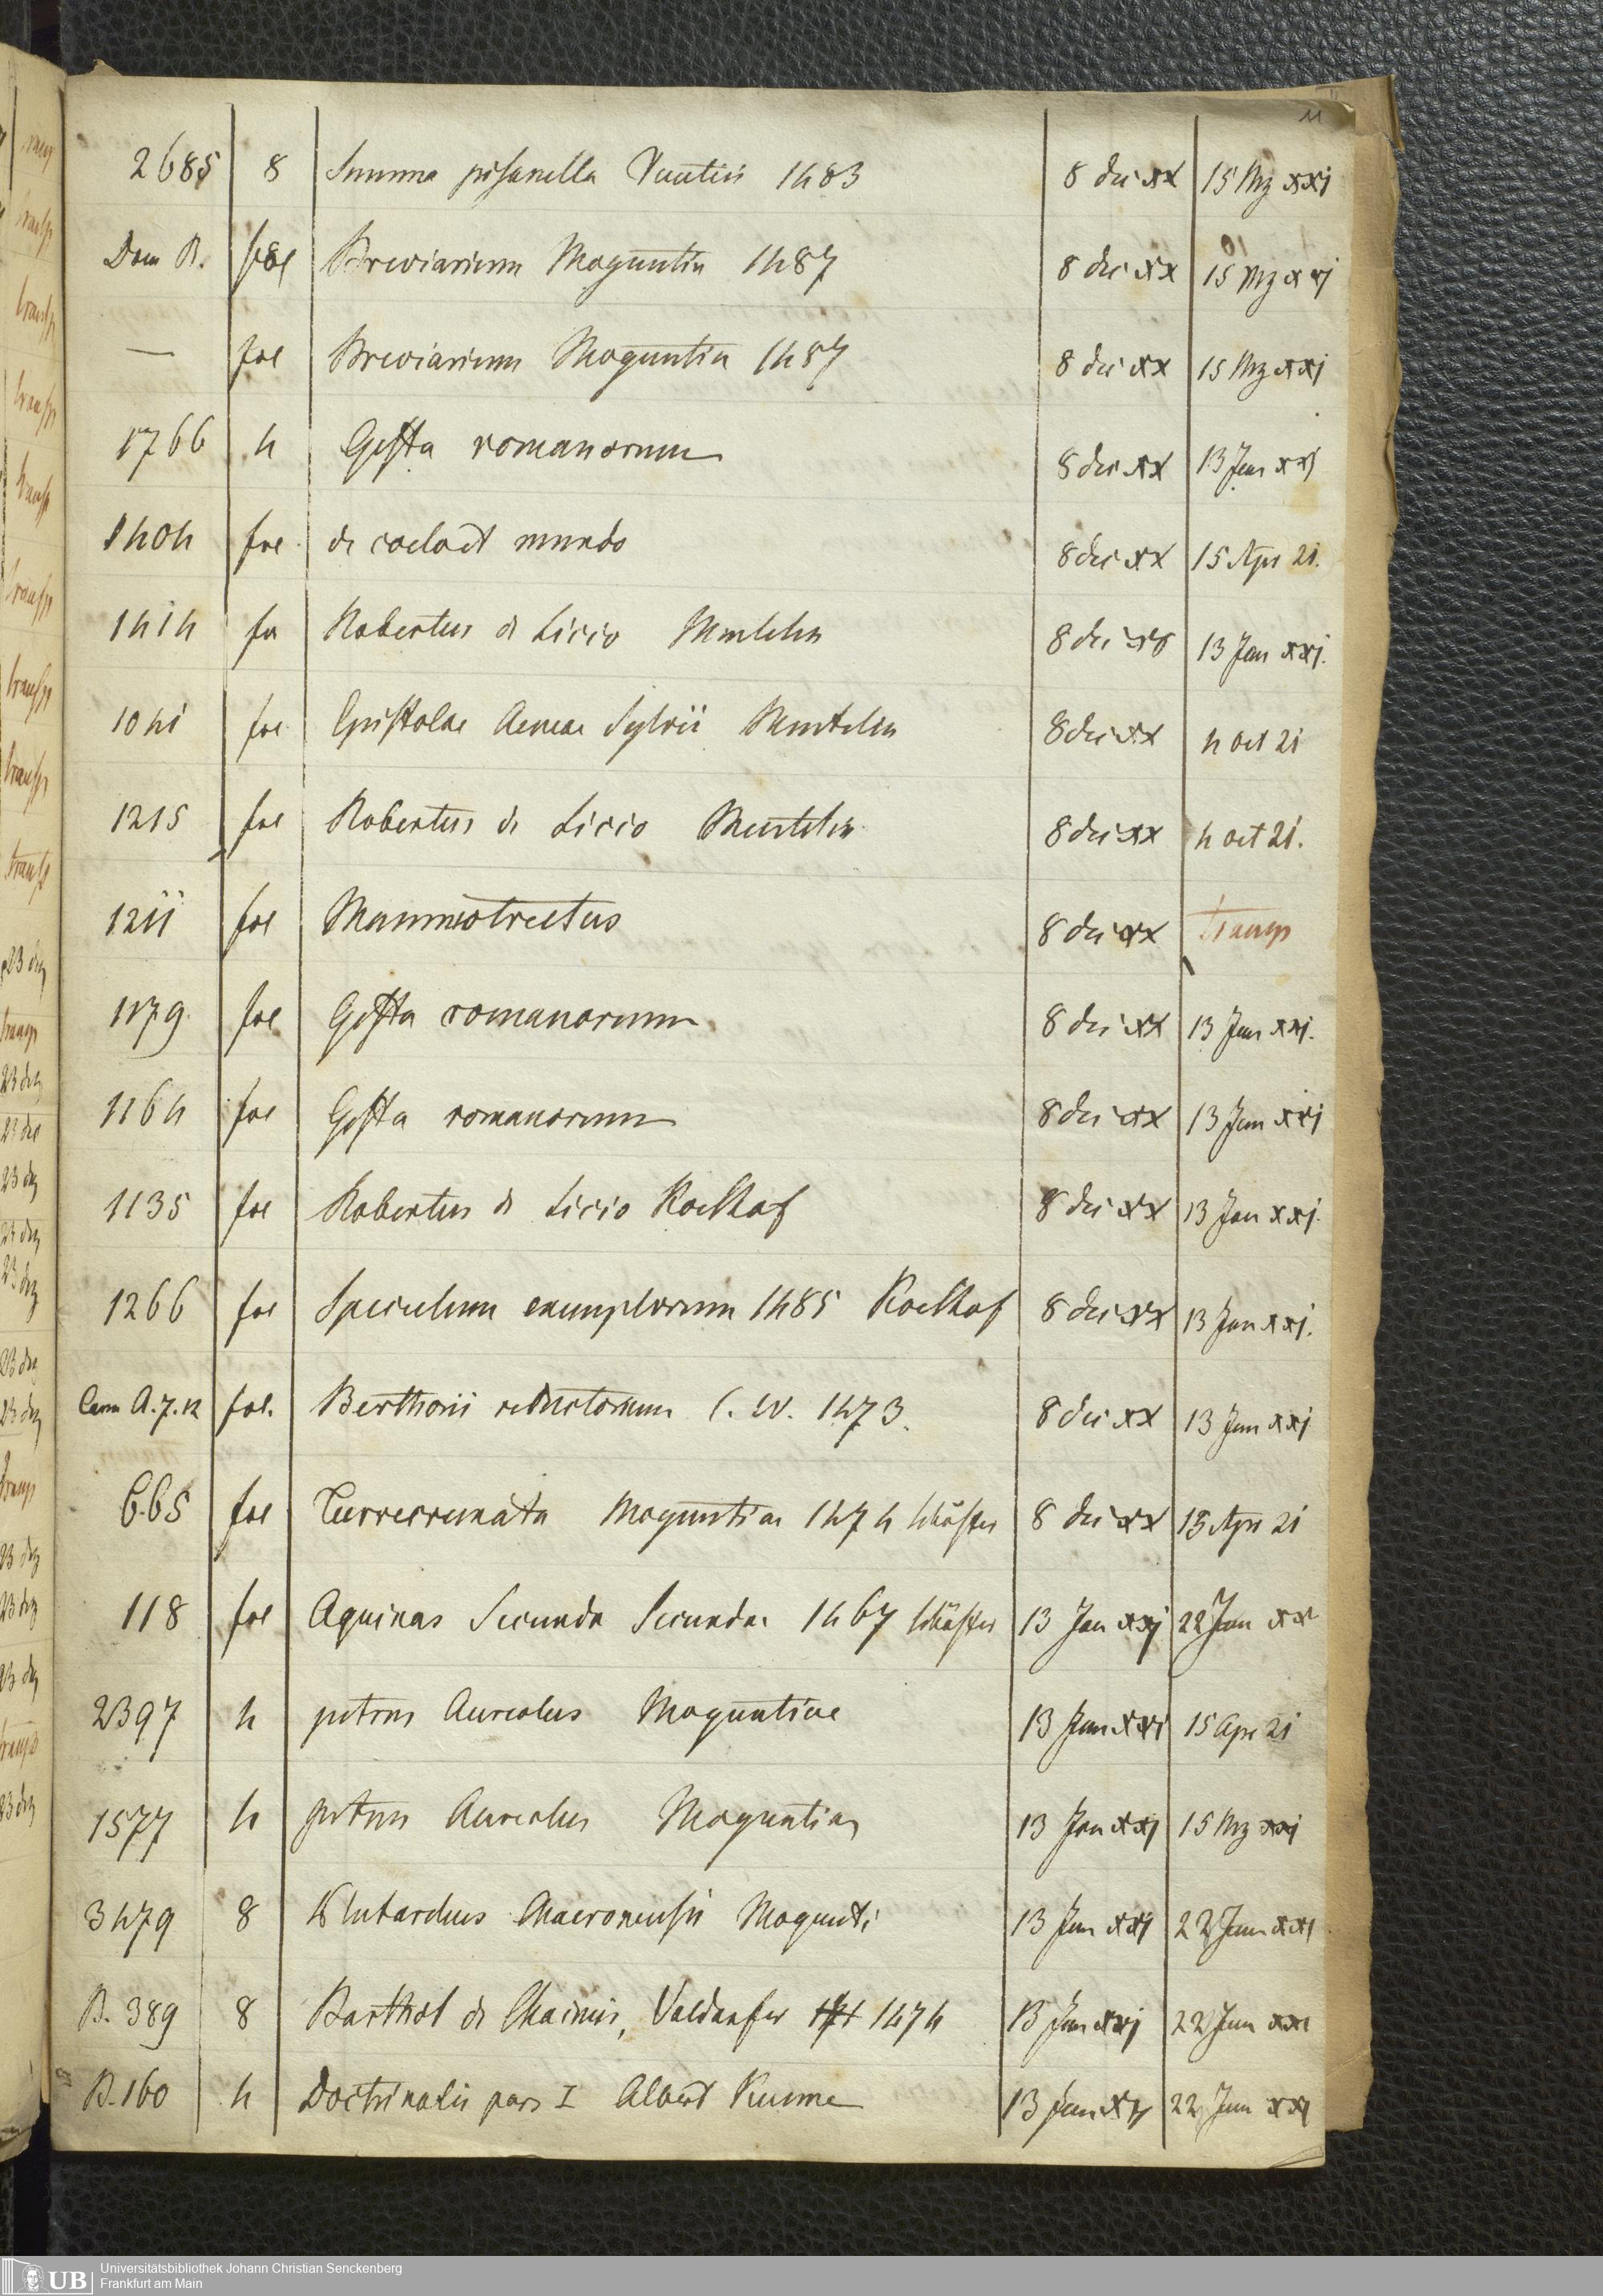 11
2685 8 Summa pisanella Venetiis 1483 8 dec xx 15 Mz xxj
Dom B. fol Breviarium Moguntin 1487 8 dec xx 15 Mz xxj
— fol Breviarium Moguntin 1487 8 dec xx 15 Mz xxj
1766 4 Gesta romanorum 8 dec xx 13 Jan xxj
1404 fol de coelo et mundo 8 dec xx 15 Apr 21.
1414 fol Robertus de Licio Mentelin 8 dec xx 13 Jan xxj.
1041 fol Epistolae Aeneae Sylvii Mentelin 8 dec xx 4 oct 21
1215 fol Robertus de Licio Mentelin 8 dec xx 4 oct 21.
1211 fol Mammotrectus 8 dec xx transp
1179 fol Gesta romanorum 8 dec xx 13 Jan xxj.
1164 fol Gesta romanorum 8 dec xx 13 Jan xxj
1135 fol Robertus de Licio Koelhof 8 dec xx 13 Jan xxj.
1266 fol Speculum exemplorum 1485 Koelhof 8 dec xx 13 Jan xxj.
A.7.12 fol. Berthorii reductorium C. W. 1473. 8 dec xx 13 Jan xxj
665 fol Turrecremata Moguntiae 1474 Schöffer 8 dec xx 15 Apr 21
118 fol Aquinas Secunda Secundae 1467 Schöffer 13 Jan xxj 22 Jan xx
2397 4 petrus Aureolus Moguntiae 13 Jan xxi 15 Apr 21
1577 4 petrus Aureolus Moguntiae 13 Jan xxj 15 Mz xxj
3479 8 Plutarchus Chaeronensis Mogunti 13 Jan xxj 22 Jan xxj
B. 389 8 Barthol de Chaimis, Valdarfer 1474 13 Jan xxj 22 Jan xxi
B. 160 4 Doctrinalis pars I Albert Kunne 13 Jan xxj 22 Jan xxj
UB Universitätsbibliothek Johann Christian Senckenberg
Frankfurt am Main